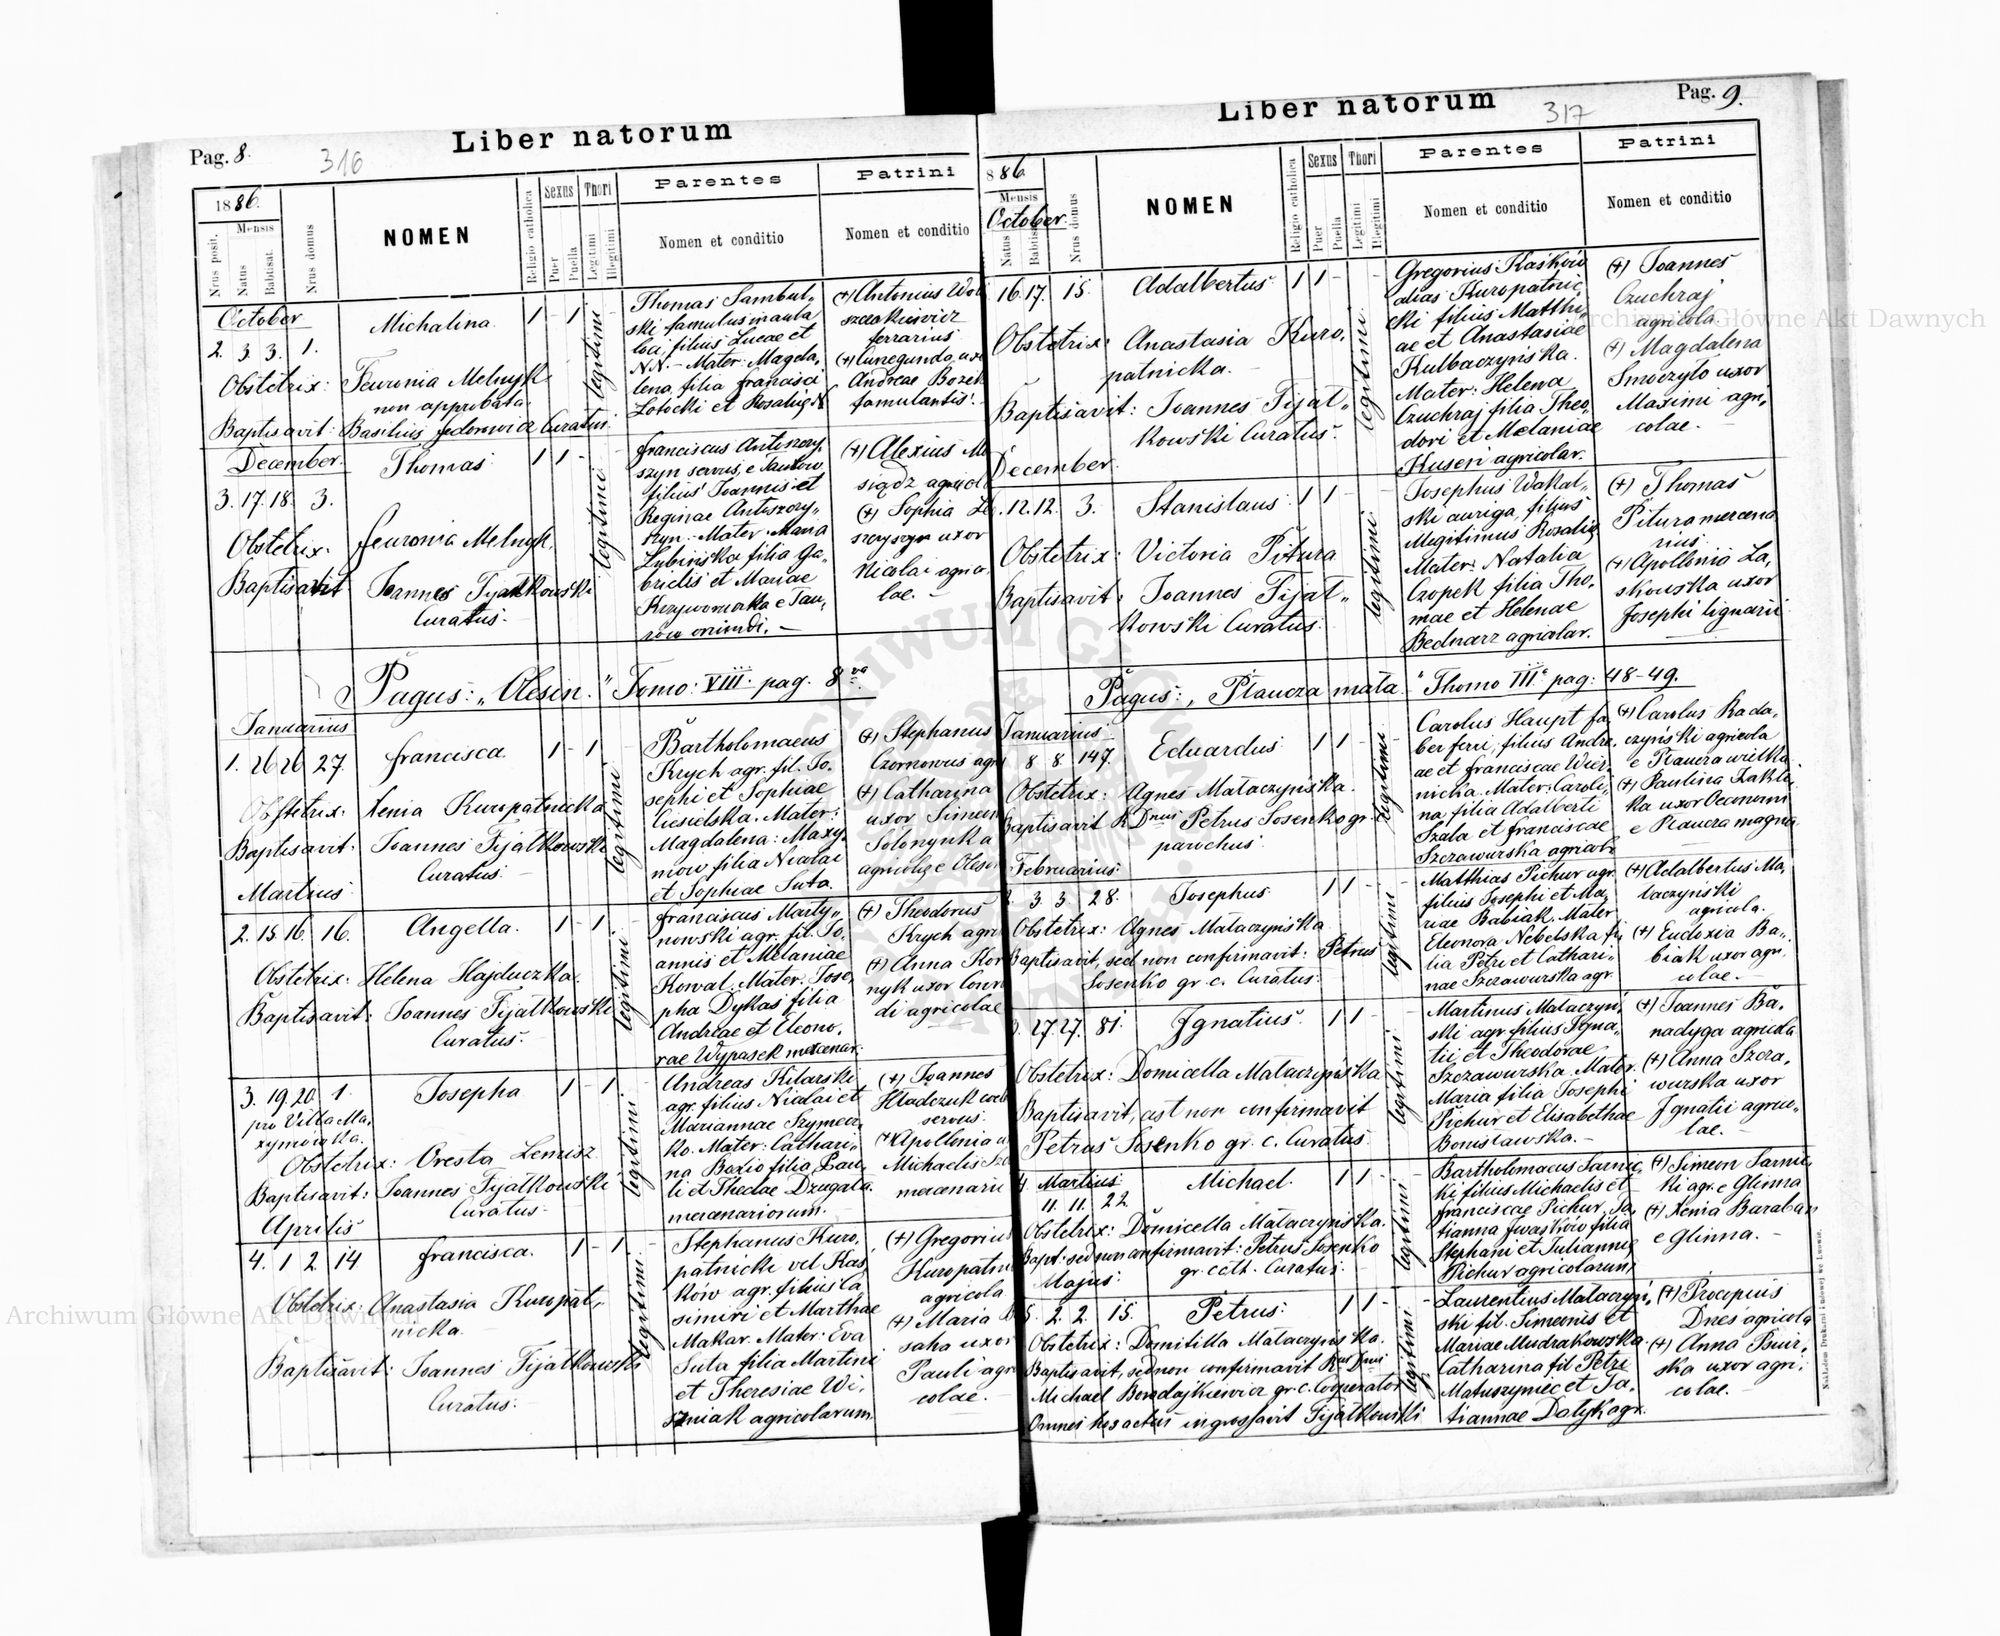 Pag. 8.
316
Liber natorum
1886.
Mensis
Nrus posit.
Natus
Babtisat.
Nrus domus
NOMEN
Religio catholica
Sexus
Puer
Puella
Thori
Legitimi
Illegitimi
Parentes
Nomen et conditio
Patrini
Nomen et conditio
October
2. 3. 3. 1.
Michalina. 1 - 1 -
legitimi
Obstetrix: Feuronia Melnyk
non approbata.
Baptisavit: Basilius Fedorowicz Curatus.
Thomas Sambul„
ski famulus in aula
loci, filius Lucae et
N.N. - Mater: Magda,
lena, filia Francisci
Lotocki et Rosaliae N
(+) Antonius Woli
szczakiewicz
ferrarius
(+) Cunegunda, uxo
Andreae Bozek
famulantis.
December.
3. 17. 18. 3.
Thomas 1 1 - -
legitimi
Obstetrix: Feuronia Melnyk.
Baptisavit Joannes Fijałkowski
Curatus. -
Franciscus Antiszczy,
szyn servus, e Taurow
filius Joannis et
Reginae Antoszczy„
szyn. Mater Maria
Lubinska filia Ga„
brielis et Mariae
Krzyworucka e Tau,
row oriundi. -
(+) Alexius M
siądz agricol
(+) Sophia Le
szczyszyn uxor
Nicolai agrico
lae. -
Pagus: „Olesin." Tomo: VIII. pag. 8va
Januarius
1. 26 26 27.
Francisca. 1 - 1 -
legitimi
Obstetrix: Xenia Kuropatnicka
Baptisavit: Joannes Fijałkowski
Curatus.
Bartholomaeus
Krych agr. fil. Jo,
sephi et Sophiae
Ciesielska. Mater:
Magdalena: Maxy,
mow filia Nicolai
et Sophiae Suta.
(+) Stephanus
Czornowus agr
(+) Catharina
uxor Simeon
Solonynka
agricolae e Olesin
Martius.
2. 15. 16. 16.
Angella. 1 - 1 .
legitimi
Obstetrix: Helena Hajduczka.
Baptisavit: Joannes Fijałkowski
Curatus.
Franciscus Marty„
nowski agr. fil. Jo,
annis et Melaniae
Kowal. Mater. Jose,
pha Dykas filia
Andreae et Eleono,
rae Wypasek mercenar.
(+) Theodorus
Krych agri
(+) Anna Kor
nyk uxor Conra
di agricolae
3. 19. 20. 1.
pro Villa Ma,
xymówka.
Josepha 1 - 1 .
legitimi
Obstetrix: Oresta Lemisz
Baptisavit: Joannes Fijałkowski
Curatus. -
Andreas Kitarski
agr. filius Nicolai et
Mariannae Szymecz,
ko. Mater: Cathari„
na Bozio filia Pau,
li et Theclae Dzugala.
mercenariorum. -
(+) Joannes
Hladczuk
servus.
(+) Apollonia u
Michaelis
mercenarii
Aprilis
4. 1 2. 14
Francisca. 1 - 1 .
legitimi
Obstetrix: Anastasia Kuropat„
nicka.
Baptisavit: Joannes Fijałkowski
Curatus.
Stephanus Kuro,
patnicki vel Kas,
kow agr. filius Ca
simiri et Marthae
Makar. Mater: Eva
Suta filia Martini
et Theresiae Wi„
szniak agricolarum
(+) Gregorius
Kuropatn
agricola
(+) Maria B
saha uxor
Pauli agri
colae. -
Liber natorum
317
Pag. 9.
886.
Mensis
October.
Natus
Babtisat.
Nrus domus
NOMEN
Religio catholica
Sexus
Puer
Puella
Thori
Legitimi
Illegitimi
Parentes
Nomen et conditio
Patrini
Nomen et conditio
16. 17. 15.
Adalbertus. 1 1 - -
legitimi
Obstetrix: Anastasia Kuro„
patnicka. -
Baptisavit: Joannes Fijał„
kowski Curatus.
Gregorius Kaskow
alias Kuropatnic„
cki filius Matthi„
ae et Anastasiae
Kulbaczynska.
Mater: Helena
Czuchraj filia Theo,
dori et Melaniae
Kuseń agricolar.
(+) Joannes
Czuchraj
agricola
(+) Magdalena
Smoczyło uxor
Maximi agri,
colae. -
December.
. 12. 12. 3.
Stanislaus. 1 1 -
legitimi
Obstetrix: Victoria Pitura
Baptisavit: Joannes Fijał„
kowski Curatus.
Josephus Wakal„
ski auriga, filius
illegitimus Rosaliae
Mater: Natalia
Czopek filia Tho„
mae et Helenae
Bednarz agricolar.
(+) Thomas
Pitura mercena
rius.
(+) Apollonia La,
skowska uxor
Josephi lignarii
Pagus: „Płaucza mała" Thomo III. pag: 48-49.
Januarius
8 8 147.
Eduardus 1 1 -
legitimi
Obstetrix: Agnes Mataczyńska.
Baptisavit RDnus Petrus Sosenko gr.
parochus.
Carolus Haupt fa,
ber ferri, filius Andre,
ae et Franciscae Wier,
nicka. Mater: Caroli,
na, filia Adalberti
Szala et Franciscae
Szczawurska agricola
(+) Carolus Rada,
czyński agricola
e Płaucza wielka
(+) Paulina Zakli
ka uxor Oeconomi
e Płaucza magna
Februarius.
3. 3. 28.
Josephus 1 1 -
legitimi
Obstetrix: Agnes Mataczyńska
Baptisavit, sed non confirmavit: Petrus
Sosenko gr. c. Curatus.
Matthias Pichur agr.
filius Josephi et Ma,
riae Babiak. Mater
Eleonora Nebelska fi
lia Petri et Cathari„
nae Szczawurska agr.
(+) Adalbertus Ma,
taczyński
agricola.
(+) Eudoxia Ba„
biak uxor agr,
colae. -
3. 27. 27. 81.
Ignatius. 1 1 -
legitimi
Obstetrix: Domicella Mataczyńska
Baptisavit, ast non confirmavit
Petrus Sosenko gr. c. Curatus.
Martinus Mataczyń,
ski agr. filius Igna„
tii et Theodorae
Szczawurska. Mater.
Maria filia Josephi
Pichur et Elisabethae
Bonisławska. -
(+) Joannes Ba„
nadyga agricola
(+) Anna Szcza,
wurska uxor
Ignatii agrico„
lae.
4. Martius.
11. 11. 22.
Michael. 1 1 -
legitimi
Obstetrix: Domicella Mataczyńska.
Bapt: sed non confirmavit: Petrus Sosenko
gr. cath. Curatus.
Bartholomaeus Sarnic,
ki filius Michaelis et
Franciscae Pichur, Ta
tianna Iwaskow filia
Stephani et Juliannae
Pichur agricolarum
(+) Simeon Sarnic,
ki agr. e Glinna
(+) Xenia Baraban
e Glinna. -
Majus.
5. 2. 2. 15.
Petrus. 1 1 -
legitimi
Obstetrix: Domitilla Mataczyńska.
Baptisavit, sed non confirmavit Rus Dnus
Michael Borodajkiewicz gr. c. Cooperator
Omnes hos actus ingrossavit Fijałkowski
Laurentius Mataczyń,
ski fil. Simeonis et
Mariae Mudrakowska.
Catharina fil. Petri
Matuszyniec et Ta„
tiannae Datyk agr.
(+) Procopius
Dnes agricola
(+) Anna
ska uxor agri,
colae. -
Nakładem Drukarni Ludowej we Lwowie.
Archiwum Główne Akt Dawnych
Archiwum Główne Akt Dawnych